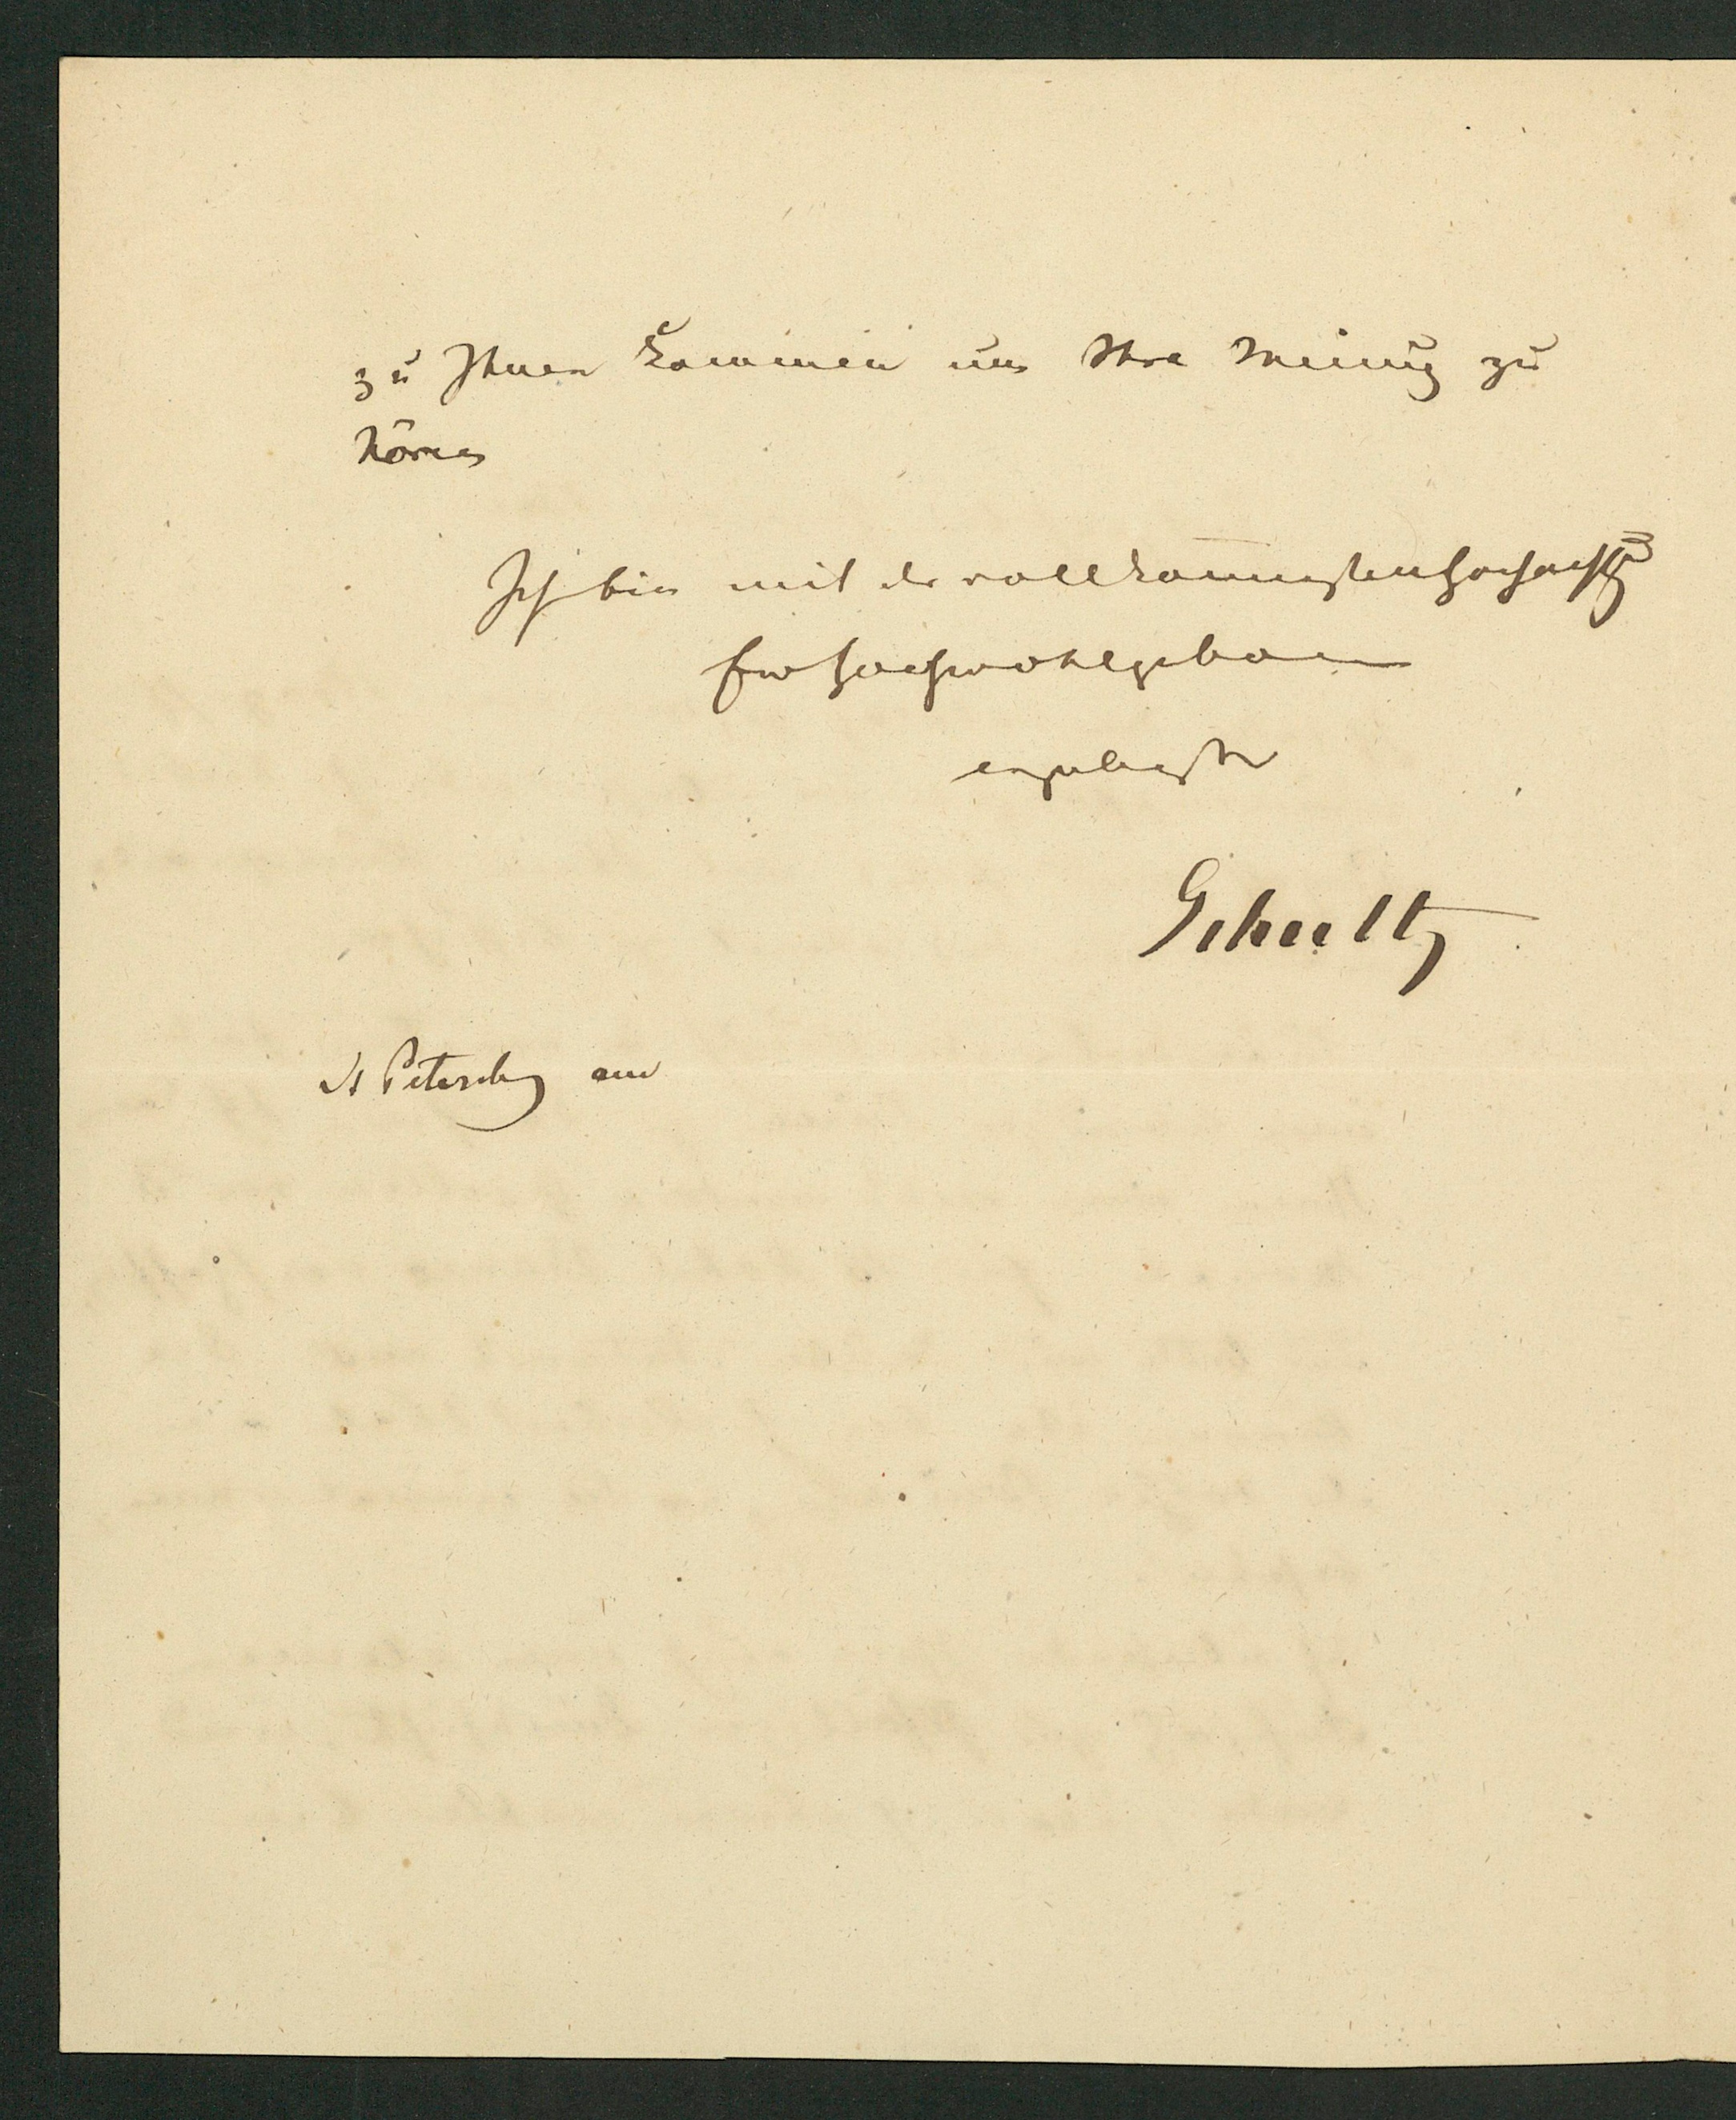 zu Ihnen kommen um Ihre Meinung zu
hören
Ich bin mit der vollkommensten Hochachtung
Ew Hochwohlgeboren
ergebenster
Schultz
St Petersburg am